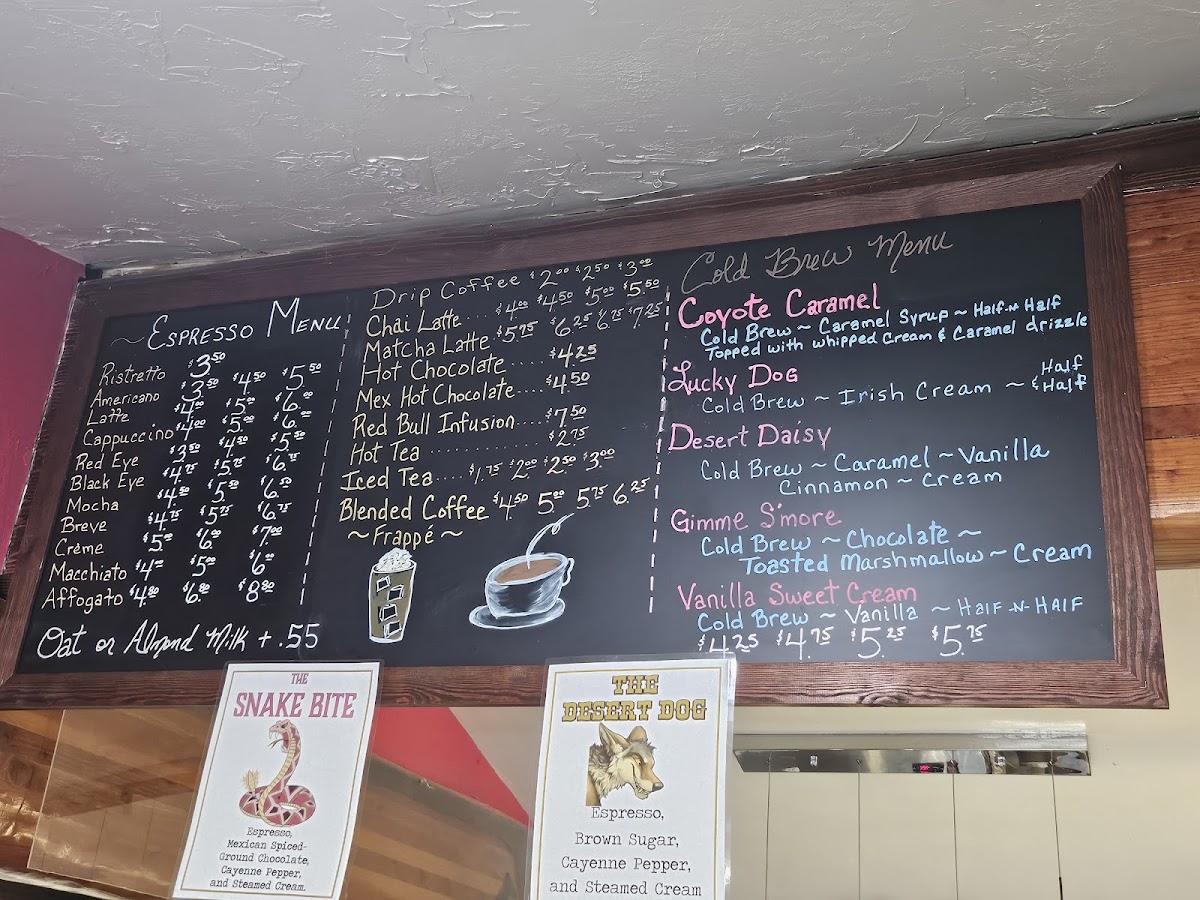 ~ Espresso Menu
Ristretto $3.50
Americano $3.50 $4.50 $5.50
Latte $4.00 $5.00 $6.00
Cappuccino $4.00 $5.00 $6.00
Red Eye $3.50 $4.50 $5.50
Black Eye $4.75 $5.75 $6.75
Mocha $4.50 $5.50 $6.50
Breve $4.75 $5.75 $6.75
Crème $5.00 $6.00 $7.00
Macchiato $5.00 $6.00
Affogato $4.80 $6.80 $8.80
Oat or Almond Milk + .55
Drip Coffee $2.00 $2.50 $3.00
Chai Latte .... $4.00 $4.50 $5.00 $5.50
Matcha Latte $5.75 $6.25 $6.75 $7.25
Hot Chocolate ..... $4.25
Mex Hot Chocolate .... $4.50
Red Bull Infusion .... $7.50
Hot Tea ............ $2.75
Iced Tea .... $1.75 $2.00 $2.50 $3.00
Blended Coffee $4.50 5.00 5.75 6.25
~ Frappé ~
Cold Brew Menu
Coyote Caramel
Cold Brew ~ Caramel Syrup ~ Half-n-Half
Topped with whipped Cream & Caramel drizzle
Lucky Dog
Cold Brew ~ Irish Cream ~ Half & Half
Desert Daisy
Cold Brew ~ Caramel ~ Vanilla
Cinnamon ~ Cream
Gimme S'more
Cold Brew ~ Chocolate ~
Toasted Marshmallow ~ Cream
Vanilla Sweet Cream
Cold Brew ~ Vanilla ~ Half-N-Half
$4.25 $4.75 $5.25 $5.75
THE
SNAKE BITE
Espresso,
Mexican Spiced-
Ground Chocolate,
Cayenne Pepper,
and Steamed Cream.
THE
DESERT DOG
Espresso,
Brown Sugar,
Cayenne Pepper,
and Steamed Cream